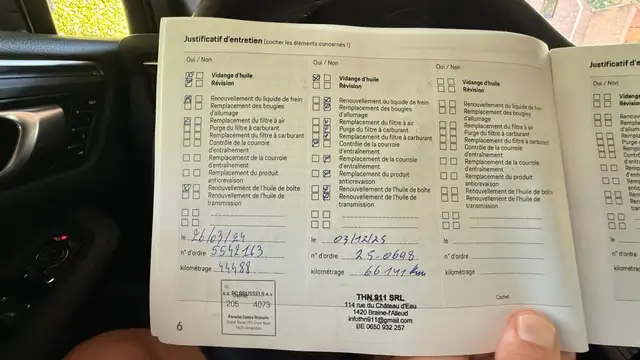 Justificatif d'entretien (cocher les éléments concernés !)
Oui / Non
Vidange d'huile
Révision
Renouvellement du liquide de frein
Remplacement des bougies
d'allumage
Remplacement du filtre à air
Purge du filtre à carburant
Remplacement du filtre à carburant
Contrôle de la courroie
d'entraînement
Remplacement de la courroie
d'entraînement
Remplacement du produit
anticrevaison
Renouvellement de l'huile de boîte
Renouvellement de l'huile de
transmission
le 26/03/24
n° d'ordre 5542163
kilométrage 44488
205 4073
Porsche Centre Brussels
Oui / Non
Vidange d'huile
Révision
Renouvellement du liquide de frein
Remplacement des bougies
d'allumage
Remplacement du filtre à air
Purge du filtre à carburant
Remplacement du filtre à carburant
Contrôle de la courroie
d'entraînement
Remplacement de la courroie
d'entraînement
Remplacement du produit
anticrevaison
Renouvellement de l'huile de boîte
Renouvellement de l'huile de
transmission
le 03/12/25
n° d'ordre 25-0698
kilométrage 66141 km
THN 911 SRL
114 rue du Château d'Eau
1420 Braine-l'Alleud
infothn911@gmail.com
BE 0650 932 257
Oui / Non
Vidange d'huile
Révision
Renouvellement du liquide de frein
Remplacement des bougies
d'allumage
Remplacement du filtre à air
Purge du filtre à carburant
Remplacement du filtre à carburant
Contrôle de la courroie
d'entraînement
Remplacement de la courroie
d'entraînement
Remplacement du produit
anticrevaison
Renouvellement de l'huile de boîte
Renouvellement de l'huile de
transmission
le
n° d'ordre
kilométrage
Cachet
6
Justificatif d'e
Oui / Non